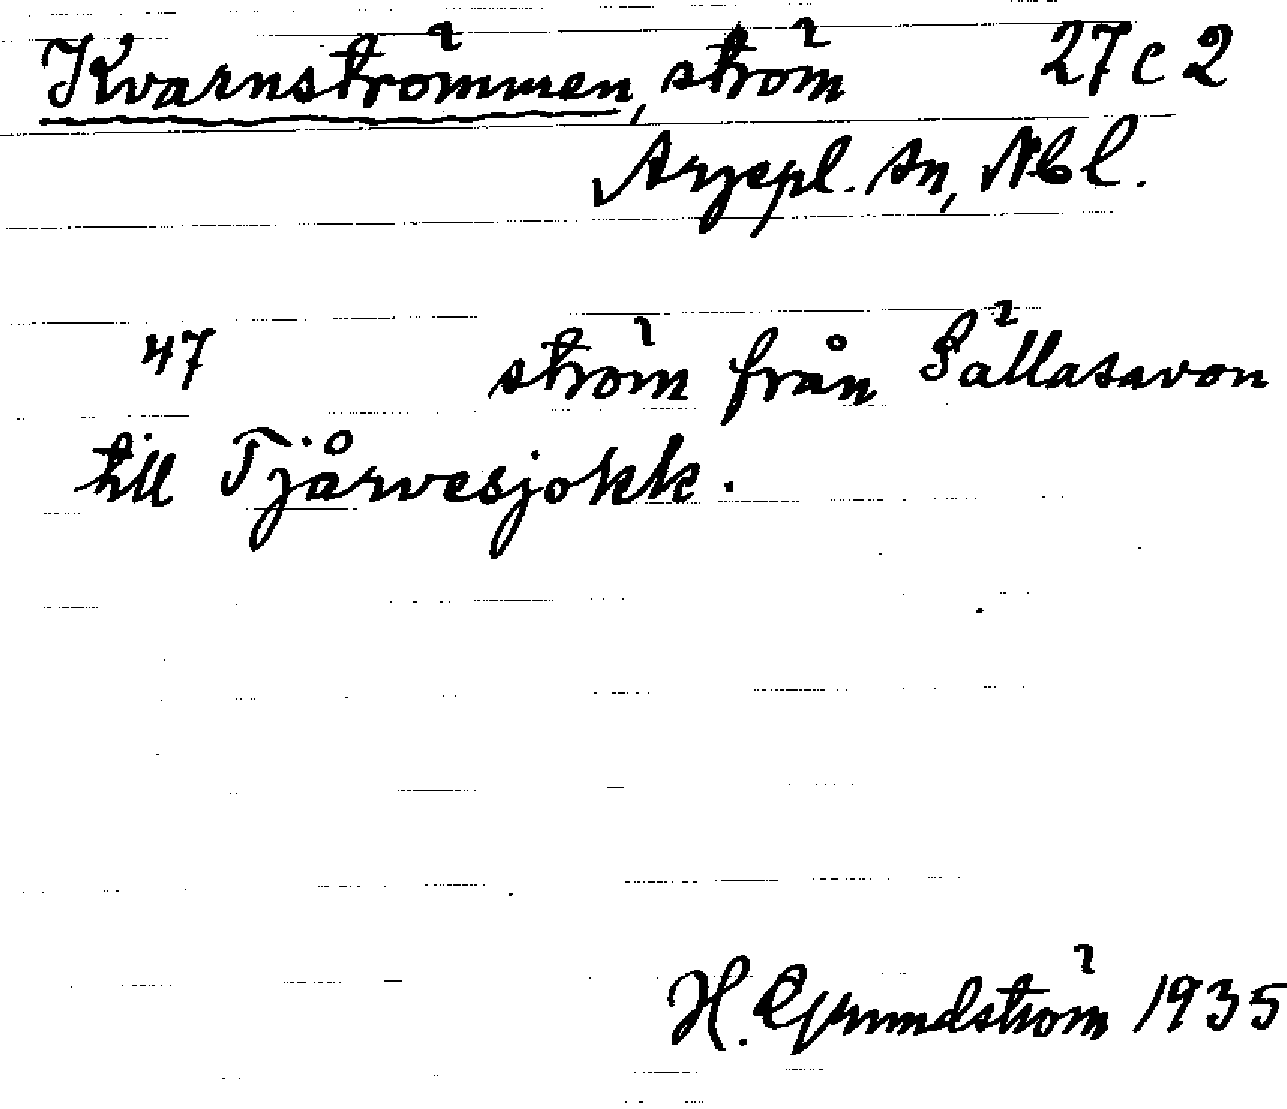 Kvarnströmmen, ström 27 c 2
Arjepl. sn, Nbl.
47 ström från Sällasavon
till Tjårvesjokk.
H. Grundström 1935